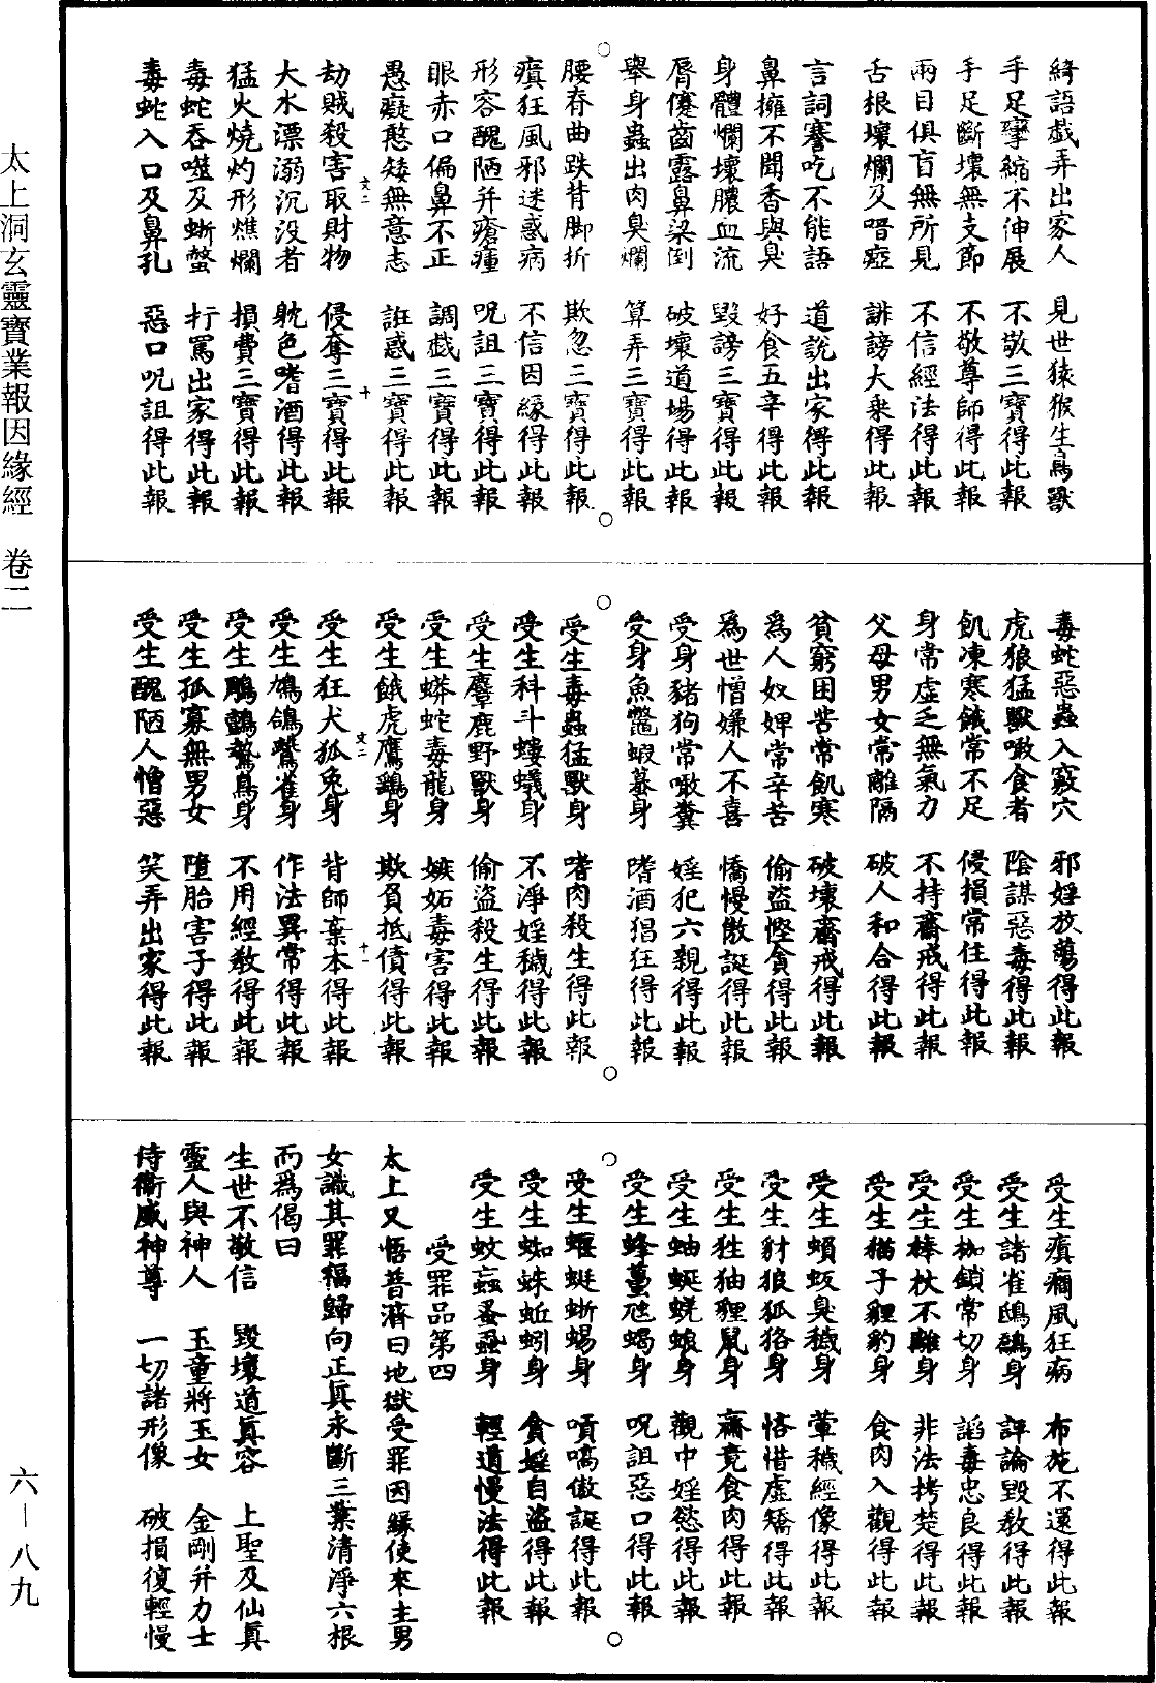 太上洞玄靈寶業報因緣經　卷二
六—八九
綺語戲弄出家人　見世猿猴生鳥獸
手足攣縮不伸展　不敬三寶得此報
手足斷壞無支節　不敬尊師得此報
兩目俱盲無所見　不信經法得此報
舌根壞爛及喑瘂　誹謗大乘得此報
言詞謇吃不能語　道說出家得此報
鼻擁不聞香與臭　好食五辛得此報
身體爛壞膿血流　毀謗三寶得此報
脣㢡齒露鼻梁倒　破壞道場得此報
舉身蟲出肉臭爛　算弄三寶得此報
腰脊曲跌背脚折　欺忽三寶得此報
癲狂風邪迷惑病　不信因緣得此報
形容醜陋并瘡瘇　呪詛三寶得此報
眼赤口偏鼻不正　調戲三寶得此報
愚癡憨矮無意志　誑惑三寶得此報
文二　十
劫賊殺害取財物　侵奪三寶得此報
大水漂溺沉没者　躭色嗜酒得此報
猛火燒灼形燋爛　損費三寶得此報
毒蛇吞噬及蜥螫　打罵出家得此報
毒蛇入口及鼻孔　惡口呪詛得此報
毒蛇惡蟲入竅穴　邪婬放蕩得此報
虎狼猛獸噉食者　陰謀惡毒得此報
飢凍寒餓常不足　侵損常住得此報
身常虛乏無氣力　不持齋戒得此報
父母男女常離隔　破人和合得此報
貧窮困苦常飢寒　破壞齋戒得此報
為人奴婢常辛苦　偷盜慳貪得此報
為世憎嫌人不喜　憍慢傲誕得此報
受身豬狗常噉糞　婬犯六親得此報
受身魚鼈蝦蟇身　嗜酒猖狂得此報
受生毒蟲猛獸身　嗜肉殺生得此報
受生科斗螻蟻身　不淨婬穢得此報
受生麞鹿野獸身　偷盜殺生得此報
受生蟒蛇毒龍身　嫉妬毒害得此報
受生餓虎鷹鷂身　欺負抵債得此報
文二　十一
受生狂犬狐兔身　背師棄本得此報
受生鳩鴿鸎雀身　作法異常得此報
受生鵰鷧鷔鳥身　不用經教得此報
受生孤寡無男女　墮胎害子得此報
受生醜陋人憎惡　笑弄出家得此報
受生癲癎風狂病　布施不還得此報
受生諸雀鴟鷂身　評論毀教得此報
受生枷鎖常切身　謟毒忠良得此報
受生棒杖不離身　非法拷楚得此報
受生猫子貍豹身　食肉入觀得此報
受生蝜蚖臭穢身　葷穢經像得此報
受生豺狼狐狢身　悋惜虛矯得此報
受生狌狖貍鼠身　齋竟食肉得此報
受生蚰蜒蜣蜋身　觀中婬慾得此報
受生蜂蠆虺蝎身　呪詛惡口得此報
受生蝘蜓蜥蜴身　嗊嗃傲誕得此報
受生蜘蛛蚯蚓身　貪婬自盜得此報
受生蚊䖟蚤蝨身　輕道慢法得此報
受罪品第四
太上又悟普濟曰地獄受罪因緣使來主男
女識其罪福歸向正真永斷三業清淨六根
而為偈曰
生世不敬信　毀壞道真容　上聖及仙真
靈人與神人　玉童將玉女　金剛并力士
侍衞威神尊　一切諸形像　破損復輕慢